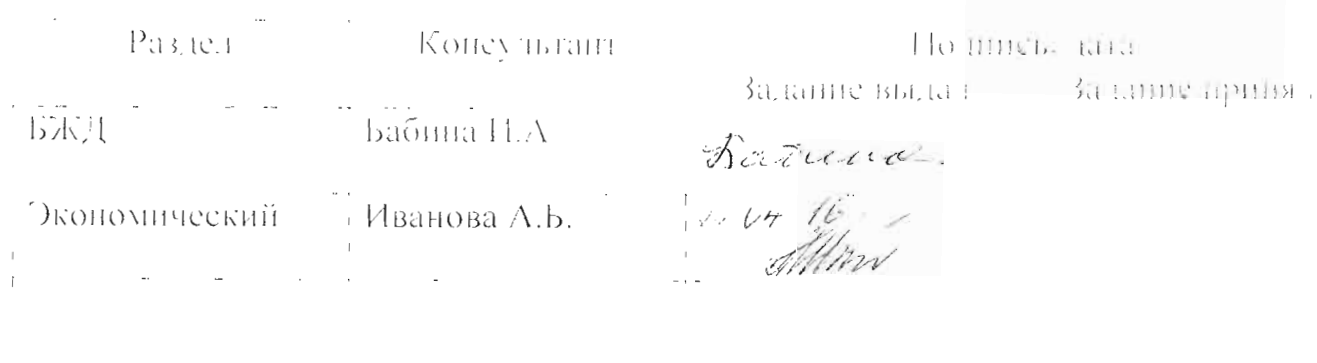 Раздел Консультант Подпись, дата
Задание выдал Задание принял
БЖД Бабина Н.А Бабина
Экономический Иванова А.Б. 04 16